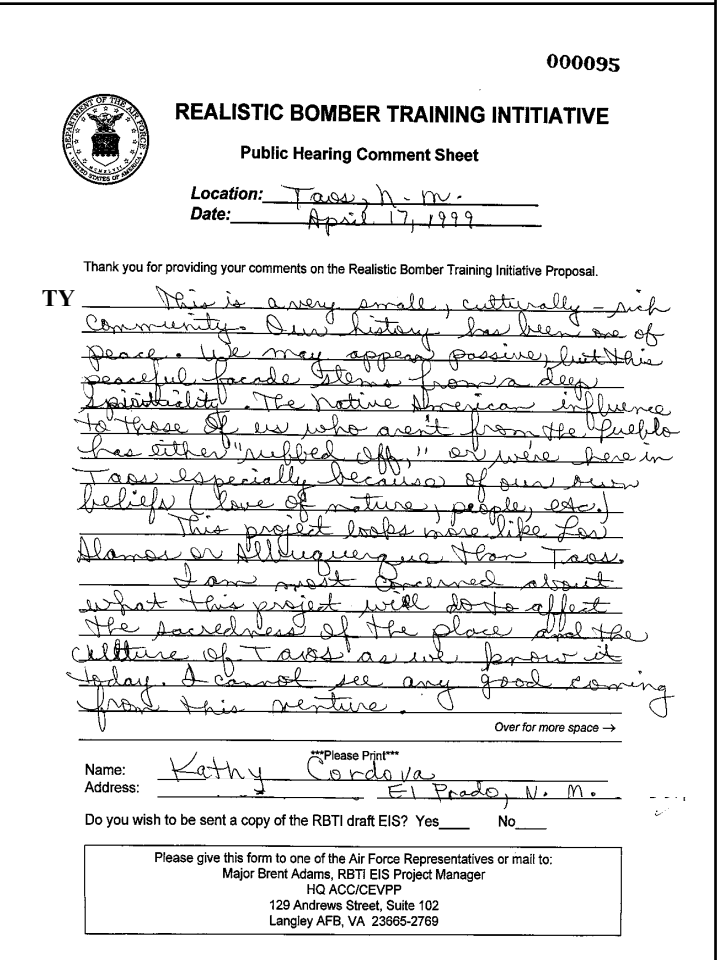 000095
DEPARTMENT OF THE AIR FORCE
MCMXLVII
UNITED STATES OF AMERICA
REALISTIC BOMBER TRAINING INTITIATIVE
Public Hearing Comment Sheet
Location: Taos, N.M.
Date: April 17, 1999
Thank you for providing your comments on the Realistic Bomber Training Initiative Proposal.
TY This is a very small, culturally-rich
community. Our history has been one of
peace. We may appear passive, but this
peaceful facade stems from a deep
spirituality. The Native American influence
to those of us who aren't from the Pueblo
has either "rubbed off," or we're here in
Taos especially because of our own
beliefs (love of nature, people, etc.)
This project looks more like Los
Alamos or Albuquerque than Taos.
I am most concerned about
what this project will do to affect
the sacredness of the place and the
culture of Taos as we know it
today. I cannot see any good coming
from this venture.
Over for more space →
***Please Print***
Name: Kathy Cordova
Address: El Prado, N. M.
Do you wish to be sent a copy of the RBTI draft EIS? Yes____ No____
Please give this form to one of the Air Force Representatives or mail to:
Major Brent Adams, RBTI EIS Project Manager
HQ ACC/CEVPP
129 Andrews Street, Suite 102
Langley AFB, VA 23665-2769